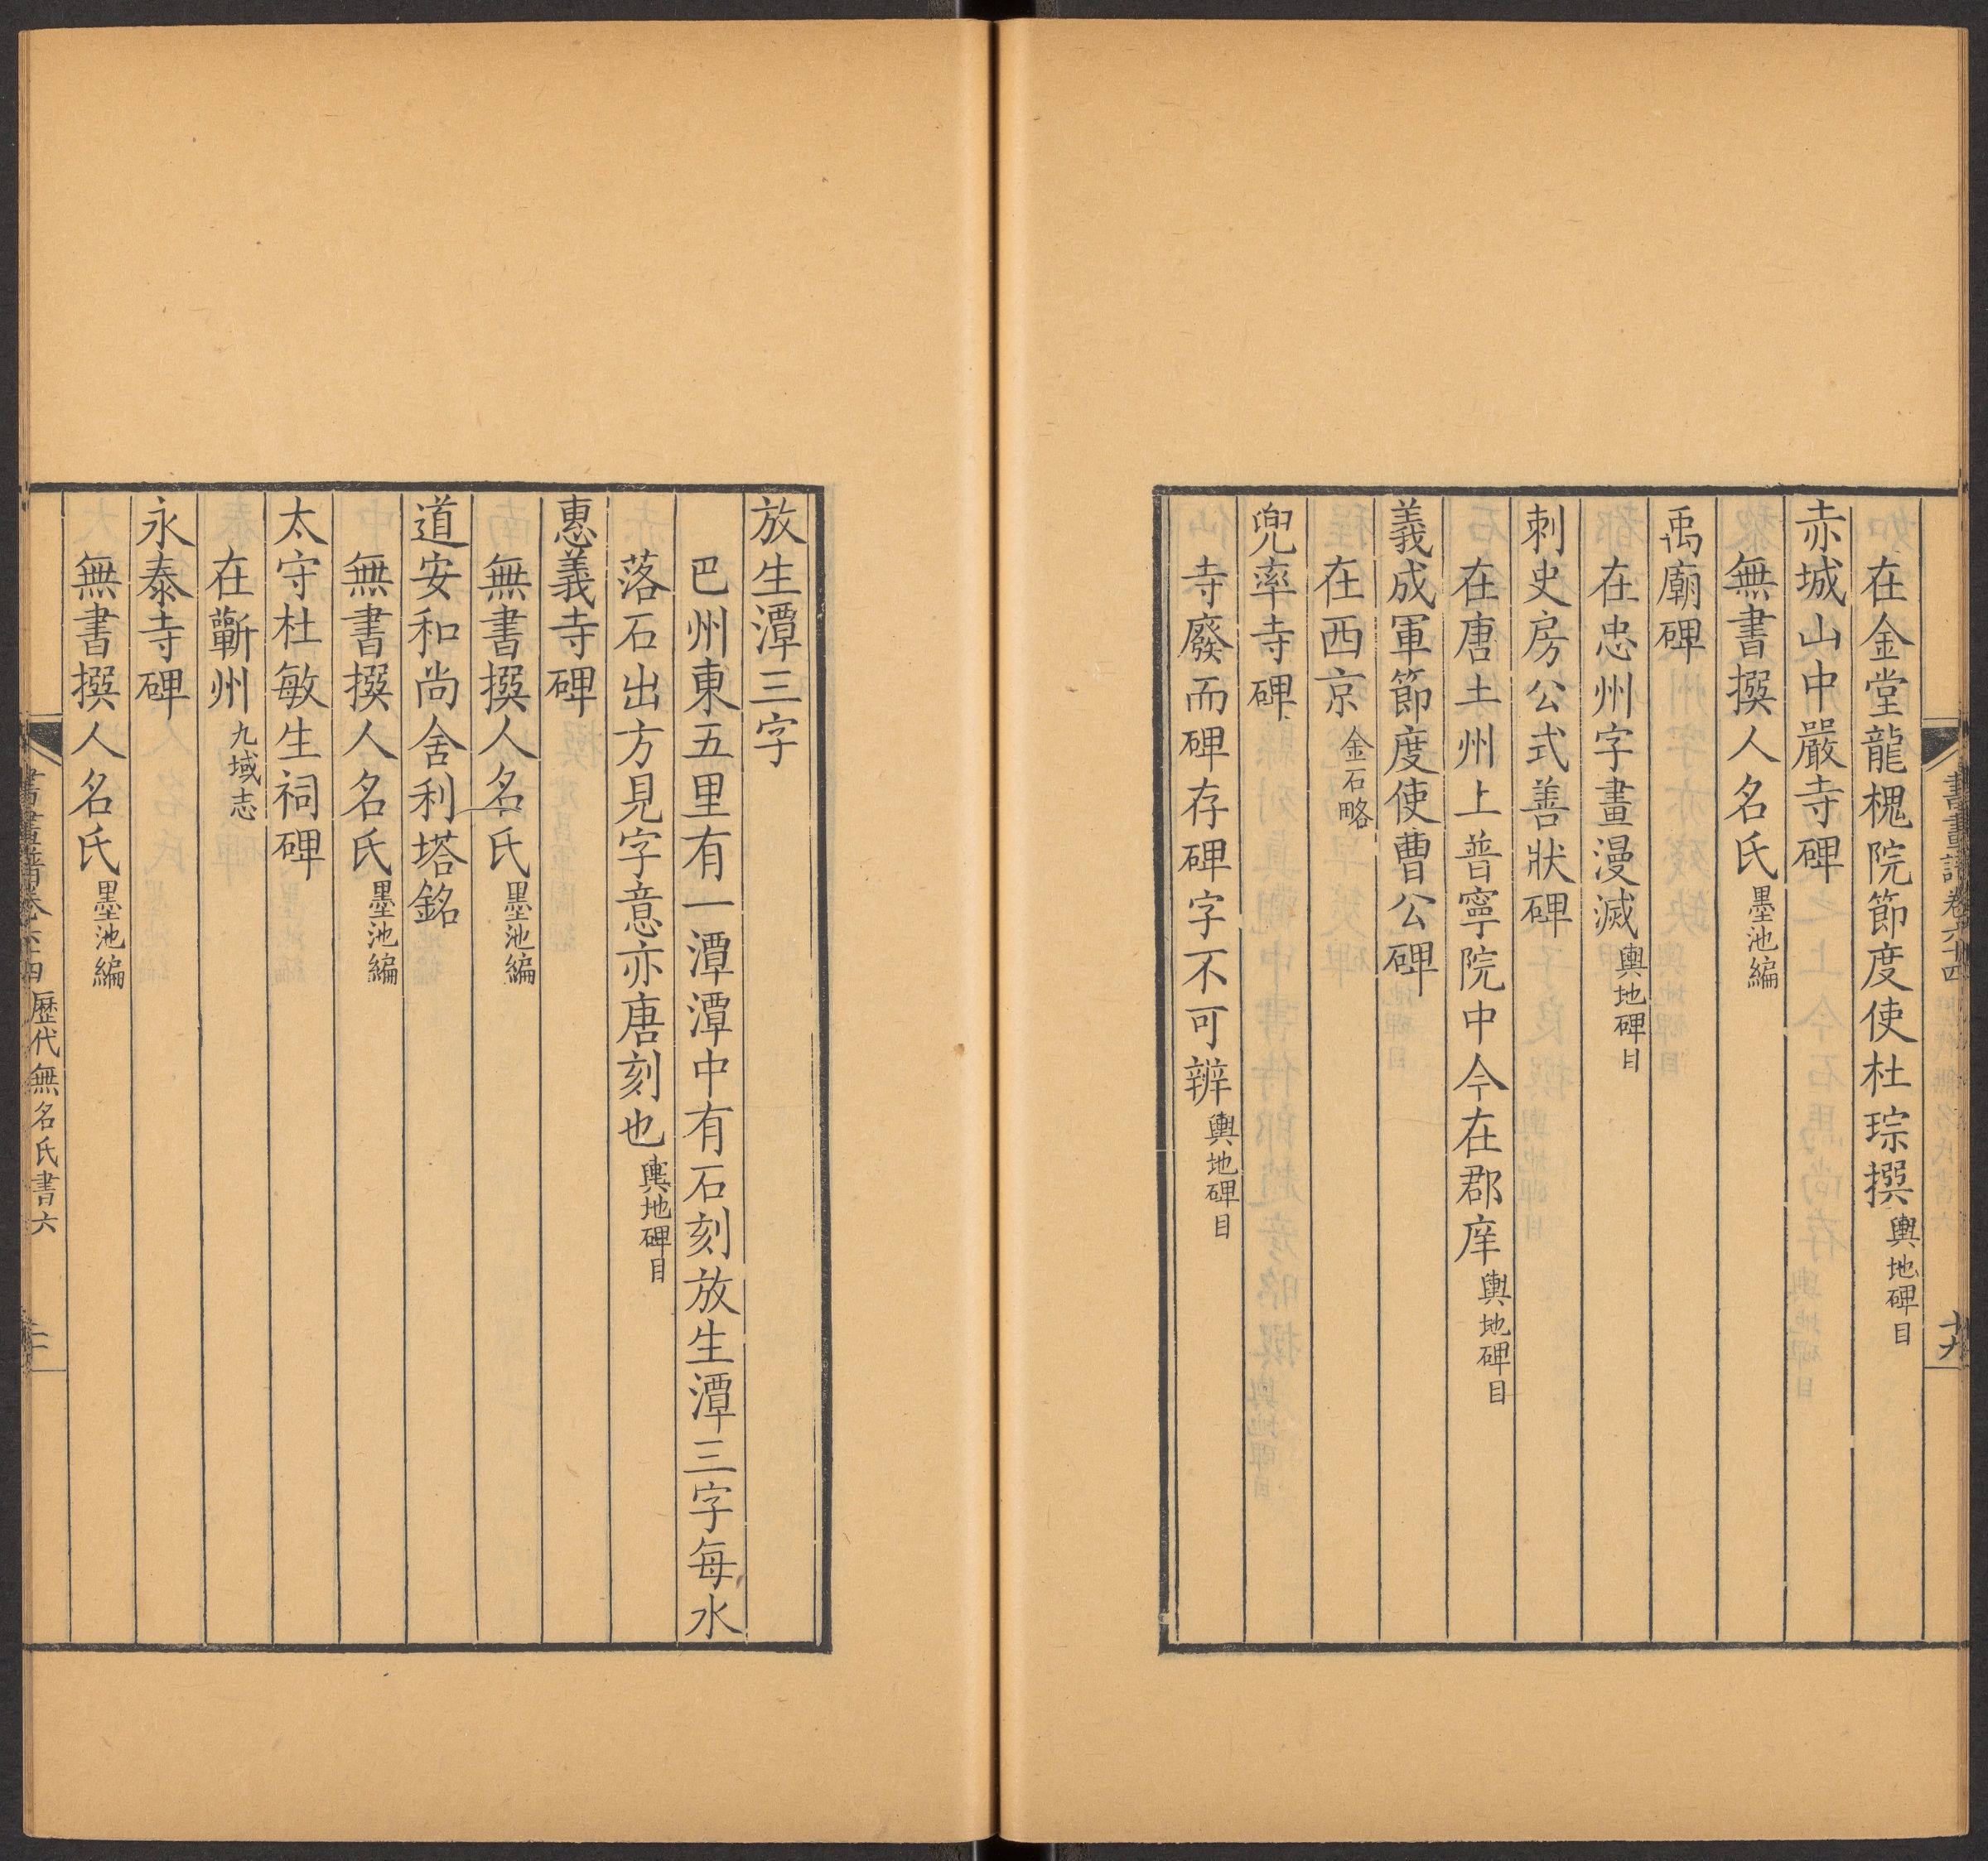 在金堂龍槐院節度使杜琮撰輿地碑目
赤城山中嚴寺碑
無書撰人名氏墨池編
禹廟碑
在忠州字畫漫滅輿地碑目
刺史房公式善狀碑
在唐土州上普寧院中今在郡庠輿地碑目
義成軍節度使曹公碑
在西京金石略
兜率寺碑
寺廢而碑存碑字不可辨輿地碑目
放生潭三字
巴州東五里有一潭潭中有石刻放生潭三字每水
落石出方見字意亦唐刻也輿地碑目
惠義寺碑
無書撰人名氏墨池編
道安和尚舍利塔銘
無書撰人名氏墨池編
太守杜敏生祠碑
在蘄州九域志
永泰寺碑
無書撰人名氏墨池編
書畫譜卷六十四 歷代無名氏書六